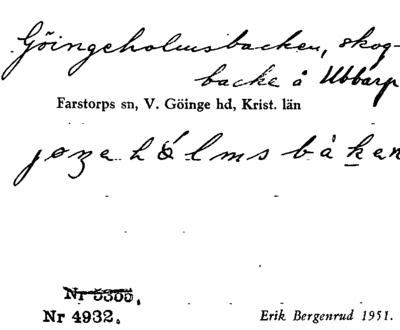 Göingeholmsbacken, skog-
backe å Ubbarp
Farstorps sn, V. Göinge hd, Krist. län
Nr 5355.
Nr 4932.
Erik Bergenrud 1951.